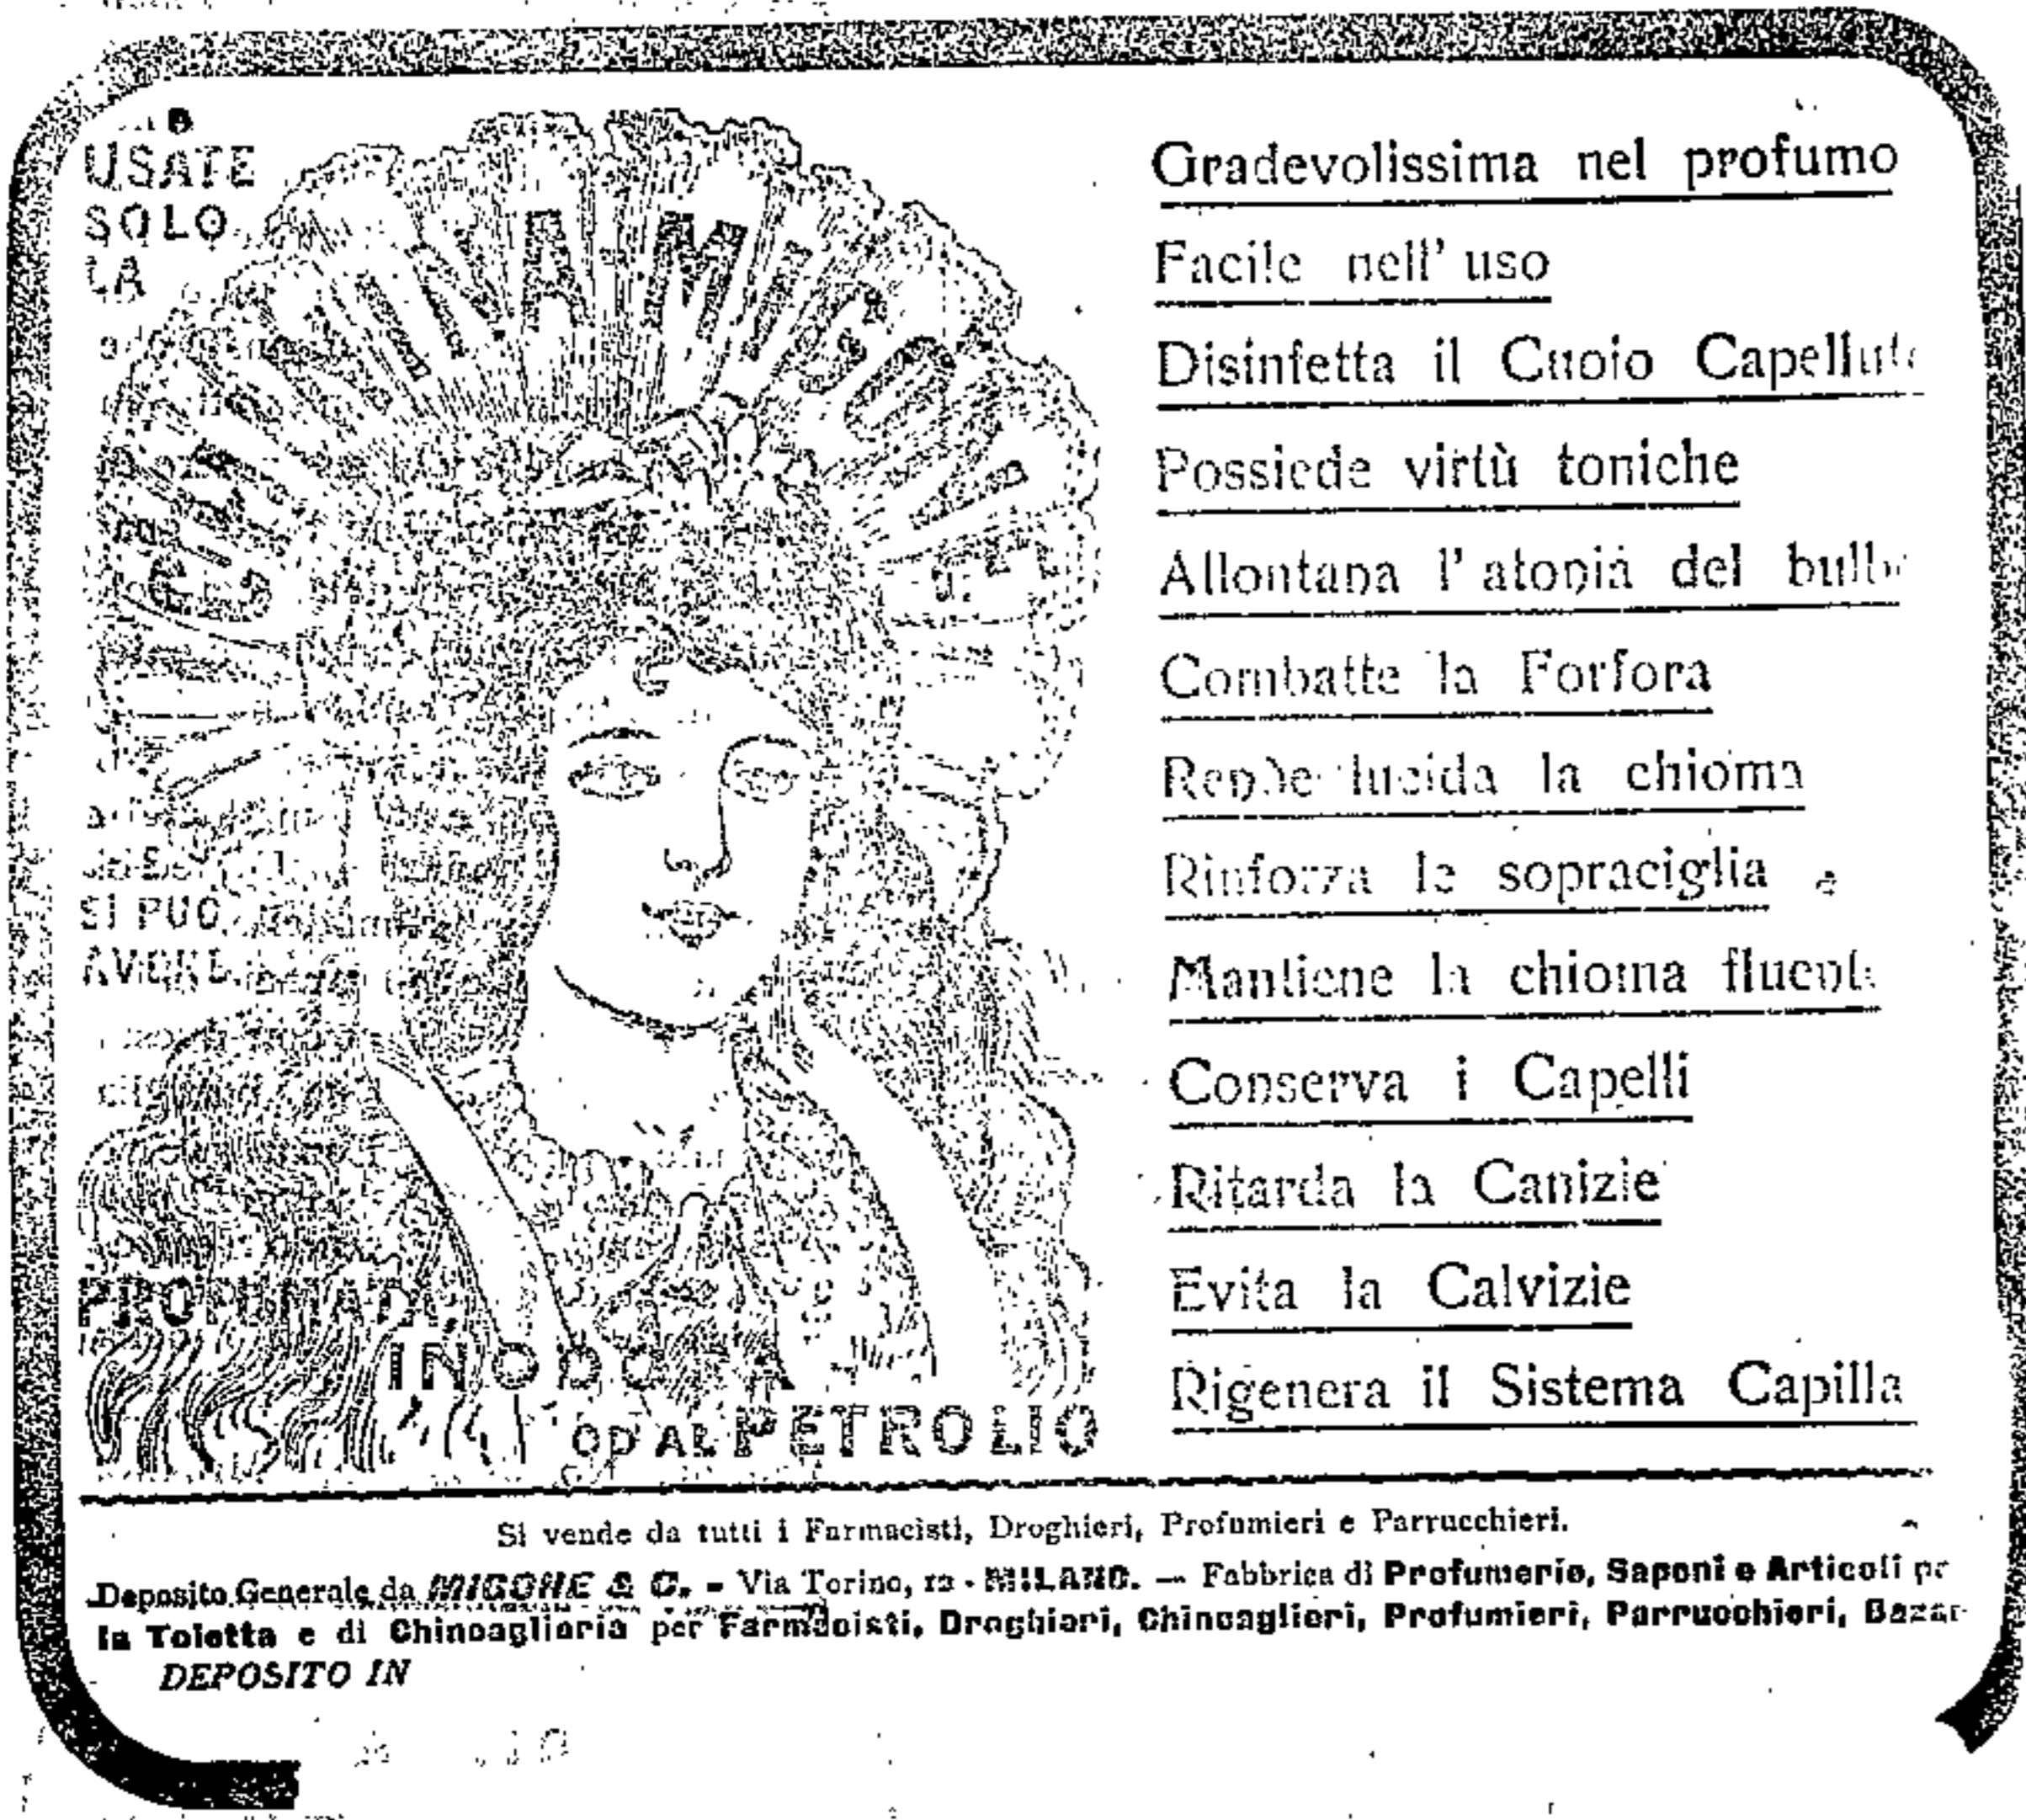 USATE
SOLO
LA
CHININA MIGONE
SI PUO
AVERE
PROFUMATA,
INODO
OD AL PETROLIO
Gradevolissima nel profumo
Facile nell' uso
Disinfetta il Cuoio Capelluto
Possiede virtù toniche
Allontana l' atonia del bulbo
Combatte la Forfora
Rende lucida la chioma
Rinforza le sopraciglia e
Mantiene la chioma fluente
Conserva i Capelli
Ritarda la Canizie
Evita la Calvizie
Rigenera il Sistema Capilla
Si vende da tutti i Farmacisti, Droghieri, Profumieri e Parrucchieri.
Deposito Generale da MIGONE & C. - Via Torino, 12 - MILANO. — Fabbrica di Profumerie, Saponi e Articoli pe
la Toletta e di Chincaglieria per Farmacisti, Droghieri, Chincaglieri, Profumieri, Parrucchieri, Bazar
DEPOSITO IN